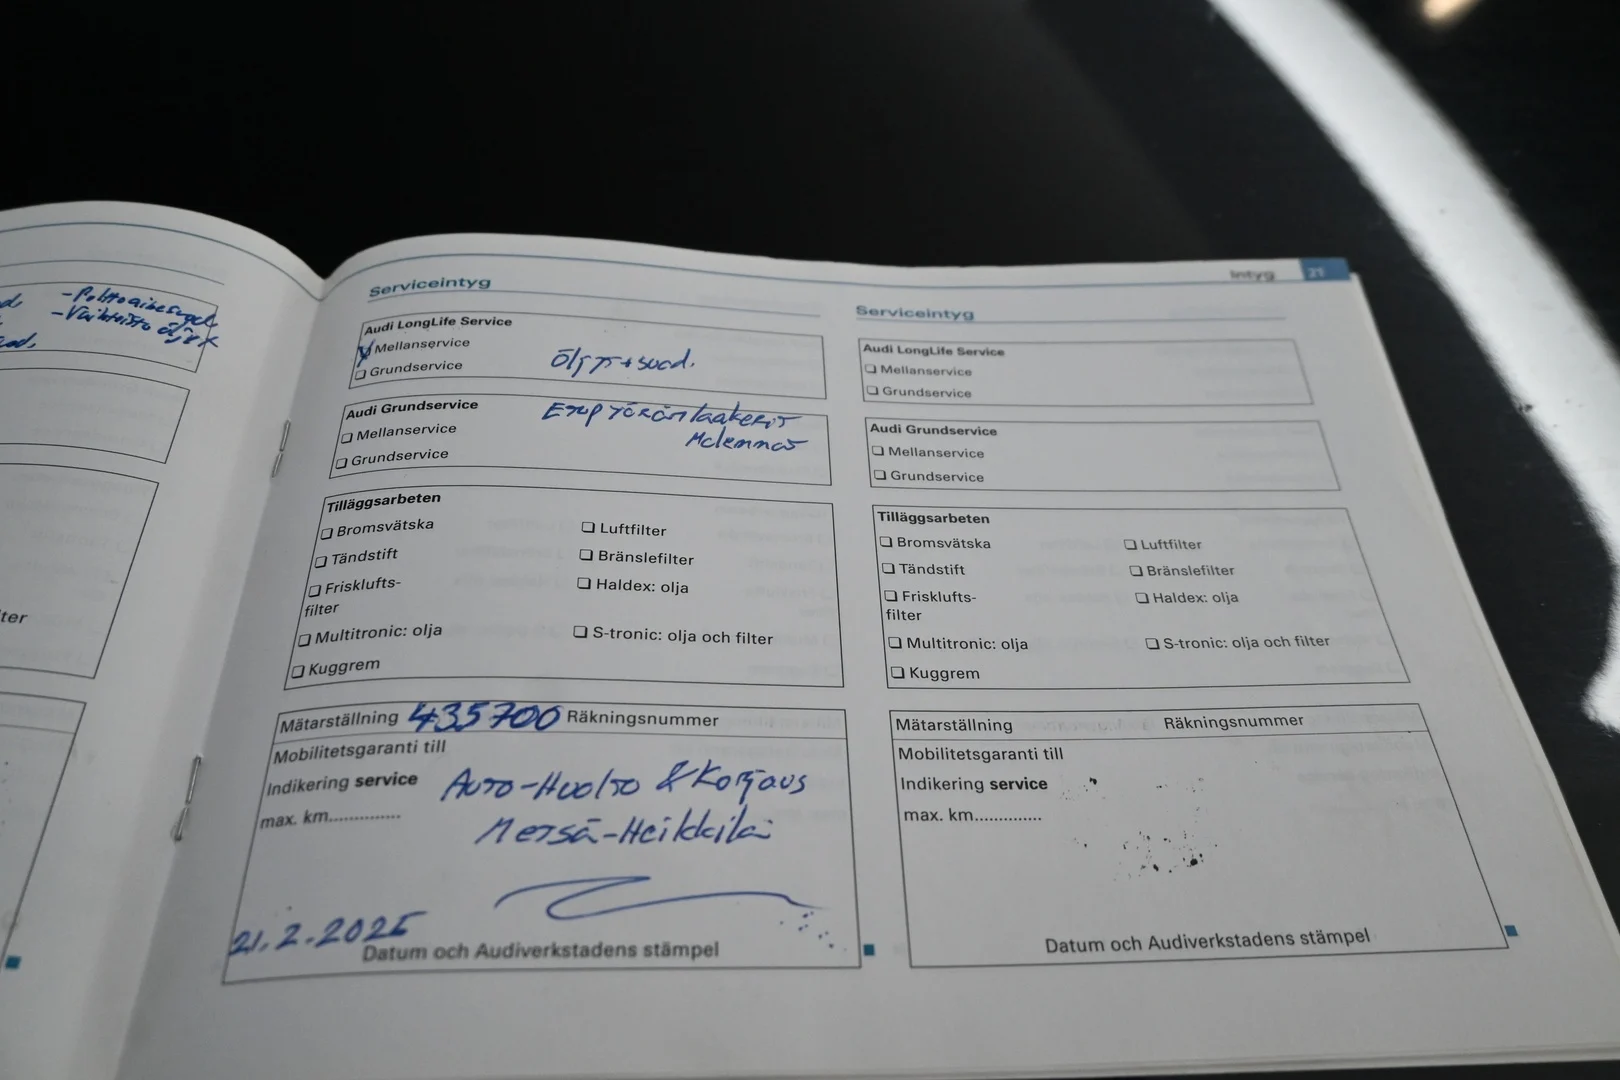 - Polttoainesuod.
- Vaihteisto öljyt
ter
Intyg 21
Serviceintyg
Audi LongLife Service
Mellanservice
Grundservice
Öljyt + suod.
Audi Grundservice
Mellanservice
Grundservice
Etupyöränlaakerit
Molemmat
Tilläggsarbeten
Bromsvätska
Luftfilter
Tändstift
Bränslefilter
Frisklufts-
filter
Haldex: olja
Multitronic: olja
S-tronic: olja och filter
Kuggrem
Mätarställning 435700 Räkningsnummer
Mobilitetsgaranti till
Indikering service
max. km..............
Auto-Huolto & Korjaus
Metsä-Heikkilä
21.2.2025
Datum och Audiverkstadens stämpel
Serviceintyg
Audi LongLife Service
Mellanservice
Grundservice
Audi Grundservice
Mellanservice
Grundservice
Tilläggsarbeten
Bromsvätska
Luftfilter
Tändstift
Bränslefilter
Frisklufts-
filter
Haldex: olja
Multitronic: olja
S-tronic: olja och filter
Kuggrem
Mätarställning Räkningsnummer
Mobilitetsgaranti till
Indikering service
max. km..............
Datum och Audiverkstadens stämpel